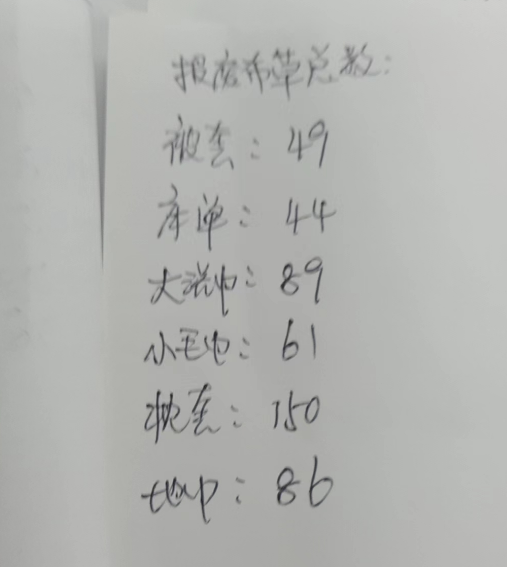 报废布草总数:
被套: 49
床单: 44
大浴巾: 89
小毛巾: 61
枕套: 150
地巾: 86